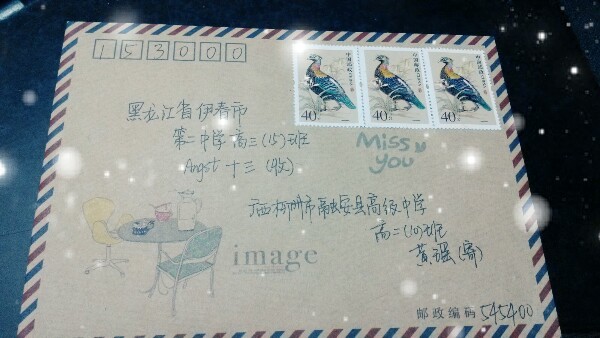 153000
中国邮政 中国邮政 中国邮政
40分 40分 40分
黑龙江省伊春市
第二中学高三(15)班
Angst 十三 (收)
Miss
you
广西柳州市融安县高级中学
高二(10)班
黄强(寄)
image
邮政编码 545400